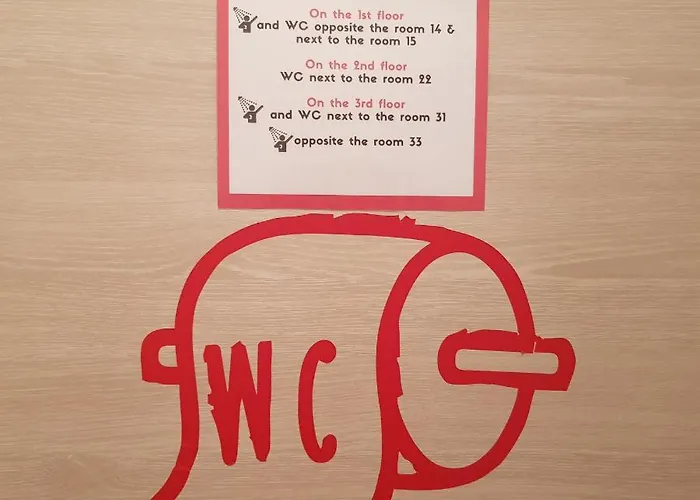 On the 1st floor
and WC opposite the room 14 &
next to the room 15
On the 2nd floor
WC next to the room 22
On the 3rd floor
and WC next to the room 31
opposite the room 33
WC